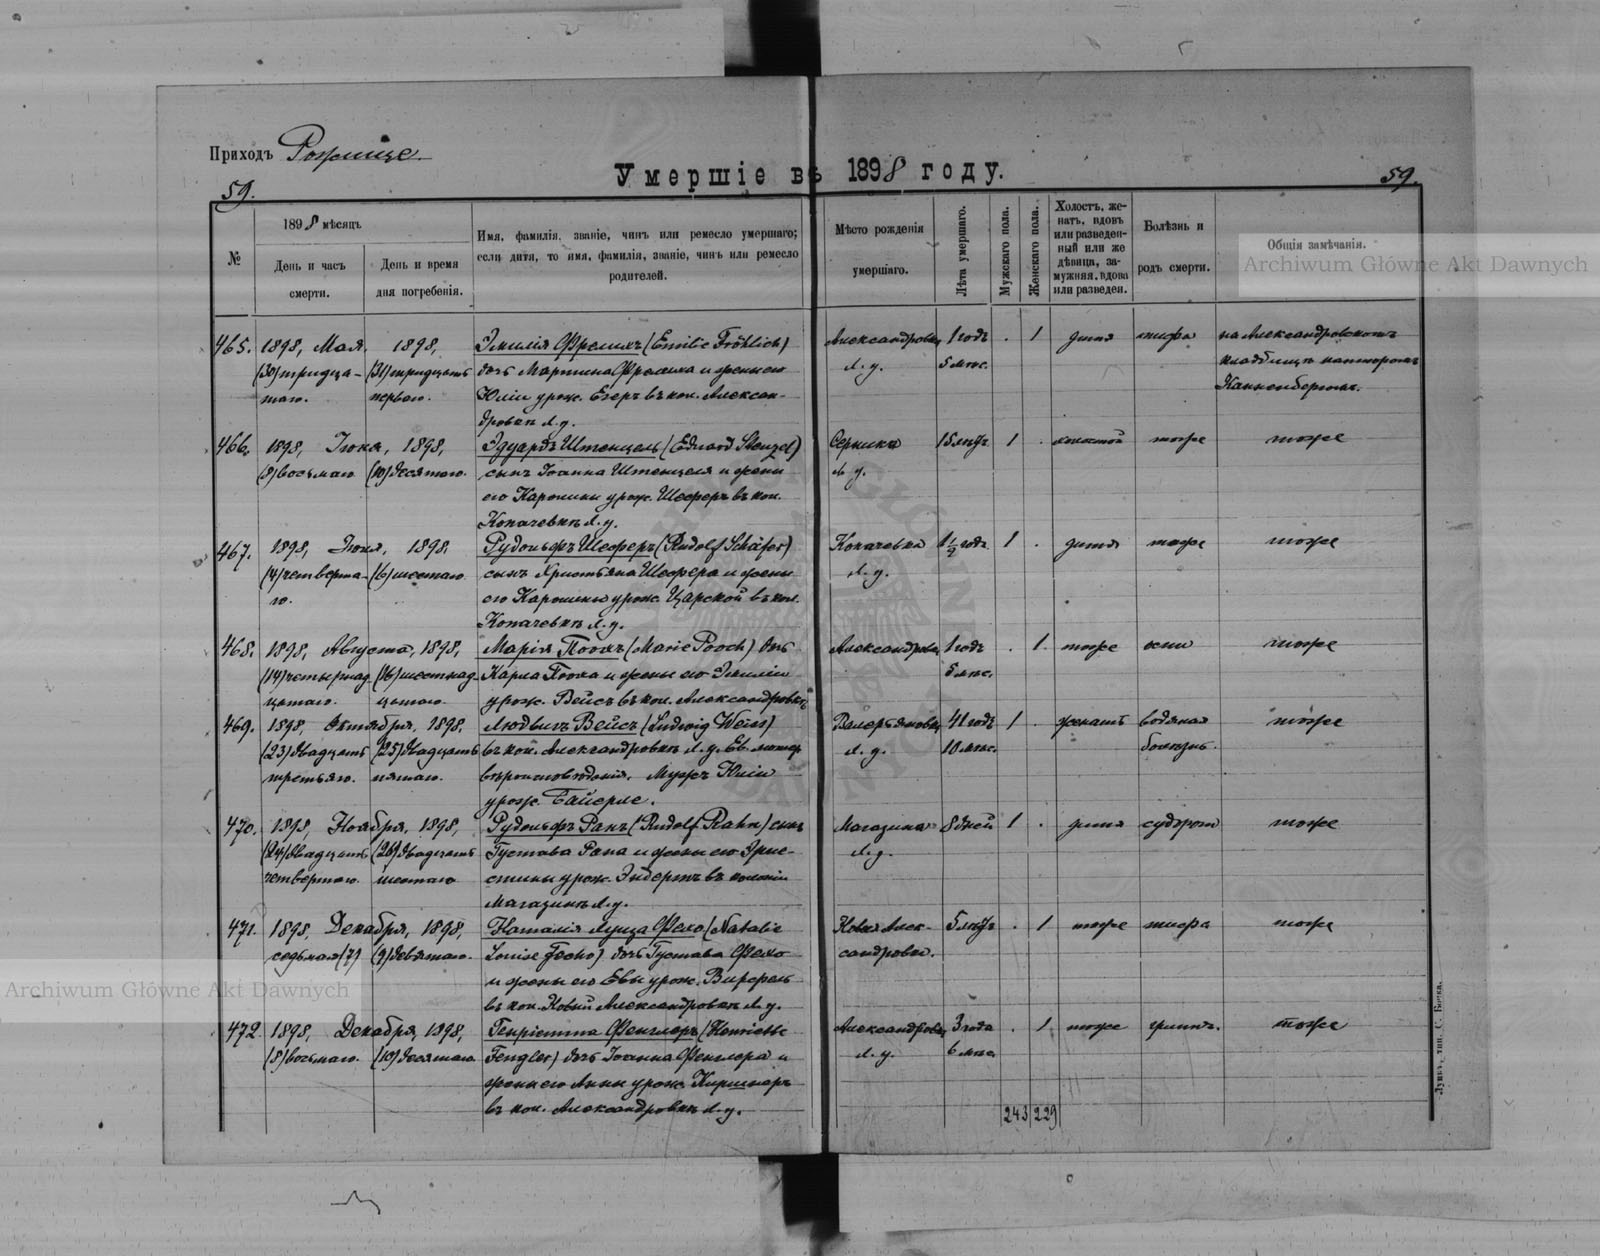 Приходъ Рожище
Умершіе въ 1898 году.
59.
59.
№
1898 мѣсяцъ
День и часъ
смерти.
День и время
дня погребенія.
Имя, фамилія, званіе, чинъ или ремесло умершаго;
если дитя, то имя, фамилія, званіе, чинъ или ремесло
родителей.
Мѣсто рожденія
умершаго.
Лѣта умершаго.
Мужскаго пола.
Женскаго пола.
Холостъ, же-
натъ, вдовъ
или разведен-
ный или же
дѣвица, за-
мужняя, вдова
или разведен.
Болѣзнь и
родъ смерти.
Общія замѣчанія.
Archiwum Główne Akt Dawnych
465. 1898, Мая. 1898, Эмилія Фрелихъ (Emilie Fröhlich) Александровка 1 годъ . 1 дитя тифа на Александровскомъ
(30) тридца- (31) тридцать дочь Мартина Фрелиха и жены его Л. у. 5 мѣс. кладбищѣ канторомъ
таго. перваго. Юліи урож. Егеръ въ кол. Алексан- Канненбергомъ.
дровкѣ Л. у.
466. 1898, Іюня, 1898, Эдуардъ Штенцель (Eduard Stenzel) Серники 15 лѣтъ 1 . холостой тоже тоже
(8) восьмаго (10) десятаго. сынъ Іоанна Штенцеля и жены Л. у.
его Каролины урож. Шеферъ въ кол.
Копачевкѣ Л. у.
467. 1898, Іюля, 1898. Рудольфъ Шеферъ (Rudolf Schäfer) Копачевка 1½ годъ 1 . дитя тоже тоже
(4) четверта- (6) шестаго сынъ Христьяна Шефера и жены Л. у.
го. его Каролины урож. Царской въ кол.
Копачевкѣ Л. у.
468. 1898, Августа, 1898, Марія Поохъ (Marie Pooch) дочь Александровка 1 годъ . 1 тоже оспы тоже
(14) четырнад- (16) шестнад- Карла Пооха и жены его Эмиліи 5 мѣс.
цатаго. цатаго. урож. Вейсъ въ кол. Александровкѣ
469. 1898, Октября, 1898, Людвигъ Вейсъ (Ludwig Weiss) Валерьяновка 41 годъ 1 . женатъ водяная тоже
(23) двадцать (25) двадцать въ кол. Александровкѣ Л. у. Ев. лютер. Л. у. 10 мѣс. болѣзнь.
третьяго. пятаго. вѣроисповѣданія. Мужъ Юліи
урож. Байерле.
470. 1898, Ноября, 1898, Рудольфъ Ранъ (Rudolf Rahn) сынъ Магазинка 8 дней 1 . дитя судорог тоже
(24) двадцать (26) двадцать Густава Рана и жены его Эрне- Л. у.
четвертаго. шестаго стины урож. Эндертъ въ колоніи
Магазинкѣ Л. у.
471. 1898, Декабря, 1898, Наталія Луиза Фехо (Natalie Новая Алек- 5 лѣтъ . 1 тоже тифа тоже
седьмаго (7) (9) девятаго. Louise Fecho) дочь Густава Фехо сандровка.
и жены его Евы урож.
въ кол. Новый Александровкѣ Л. у.
472. 1898, Декабря, 1898, Генріетта Фенглеръ (Henriette Александровка 3 года . 1 тоже тоже
(8) восьмаго. (10) десятаго. Fengler) дочь Іоанна Фенглера и Л. у. 6 мѣс.
жены его Анны урож. Киршнеръ
въ кол. Александровкѣ Л. у.
243 229
Archiwum Główne Akt Dawnych